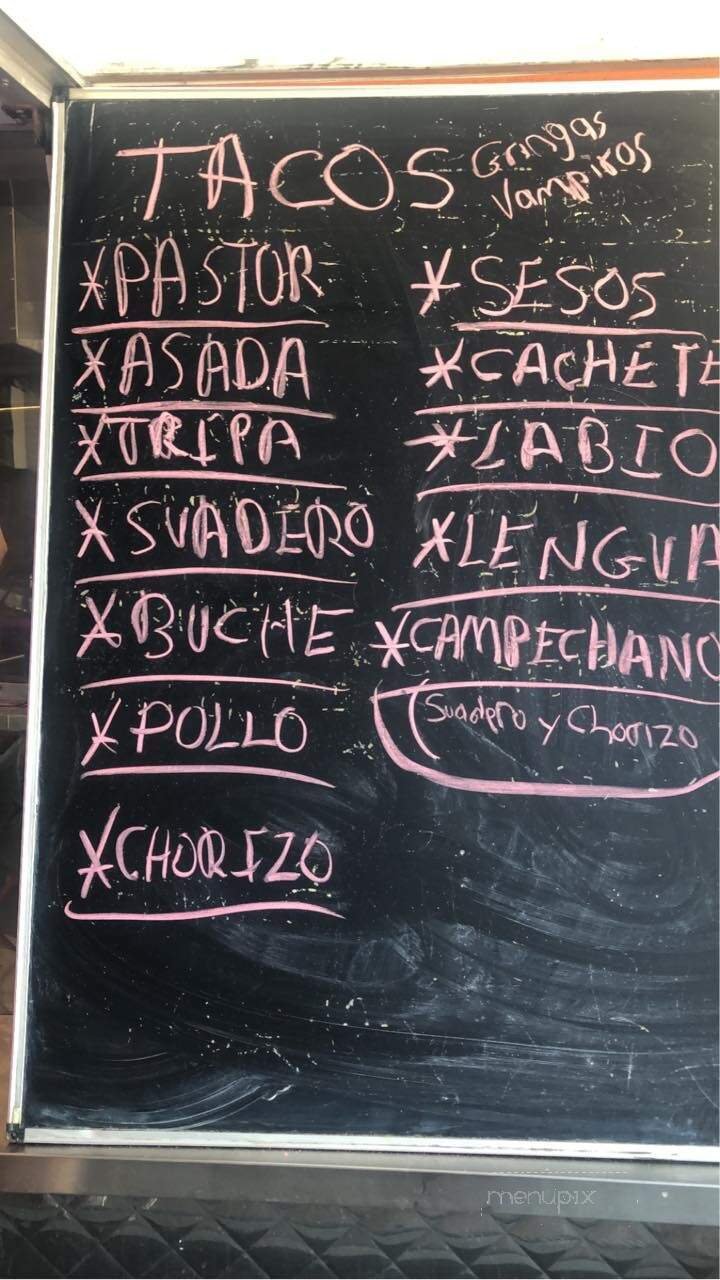 TACOS Gringas
Vampiros
*PASTOR
*ASADA
*TRIPA
*SUADERO
*BUCHE
*POLLO
*CHORIZO
*SESOS
*CACHETE
*LABIO
*LENGUA
*CAMPECHANO
(Suadero y Chorizo
menupix